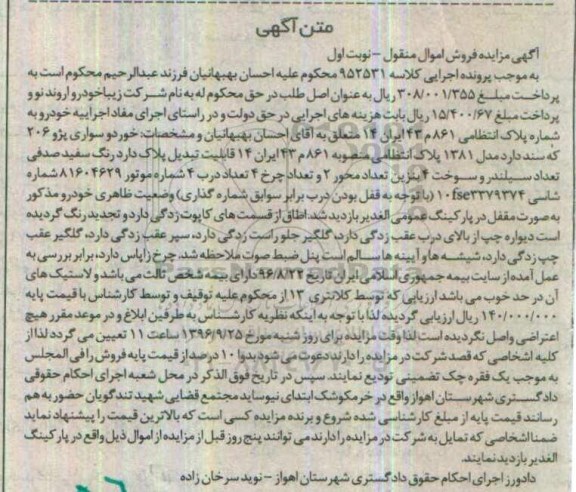 متن آگهی
آگهی مزایده فروش اموال منقول – نوبت اول
به موجب پرونده اجرایی کلاسه ۹۵۲۵۳۱ محکوم علیه احسان بهبهانیان فرزند عبدالرحیم محکوم است به
پرداخت مبلغ ۳۰۸/۰۰۱/۳۵۵ ریال به عنوان اصل طلب در حق محکوم له به نام شرکت زیبا خودرو اروند نو و
پرداخت مبلغ ۱۵/۴۰۰/۶۷ ریال بابت هزینه های اجرایی در حق دولت و در راستای اجرای مفاد اجراییه خودرو به
شماره پلاک انتظامی ۸۶۱ م ۴۳ ایران ۱۴ متعلق به آقای احسان بهبهانیان و مشخصات: خودرو سواری پژو ۲۰۶
که سند دارد مدل ۱۳۸۱ پلاک انتظامی منصوبه ۸۶۱ م ۴۳ ایران ۱۴ قابلیت تبدیل پلاک دارد رنگ سفید صدفی
تعداد سیلندر و سوخت ۴ بنزین تعداد محور ۲ و تعداد چرخ ۴ تعداد درب ۴ شماره موتور ۸۱۶۰۴۶۲۹ شماره
شاسی ۱۰fse۳۳۷۹۳۷۴ (با توجه به قفل بودن درب برابر سوابق شماره گذاری) وضعیت ظاهری خودرو مذکور
به صورت مقفل در پارکینگ عمومی الغدیر بازدید شد. اطاق از قسمت های کاپوت زدگی دارد و تجدید رنگ گردیده
است دیواره چپ از بالای درب عقب زدگی دارد، گلگیر جلو راست زدگی دارد، سپر عقب زدگی دارد، گلگیر عقب
چپ زدگی دارد، شیشه ها و آیینه ها سالم است پنل ضبط صوت ملاحظه شد. چرخ زاپاس دارد، برابر بررسی به
عمل آمده از سایت بیمه جمهوری اسلامی ایران تاریخ ۹۶/۸/۲۲ دارای بیمه شخص ثالث می باشد و لاستیک های
آن در حد خوب می باشد ارزیابی که توسط کلانتری ۱۳ از محکوم علیه توقیف و توسط کارشناس با قیمت پایه
۱۴۰/۰۰۰/۰۰۰ ریال ارزیابی گردیده لذا با توجه به اینکه نظریه کارشناس به طرفین ابلاغ و در موعد مقرر هیچ
اعتراضی واصل نگردیده است لذا وقت مزایده برای روز شنبه مورخ ۱۳۹۶/۹/۲۵ ساعت ۱۱ تعیین می گردد لذا از
کلیه اشخاصی که قصد شرکت در مزایده را دارند دعوت می شود بدوا ۱۰ درصد از قیمت پایه فروش را فی المجلس
به موجب یک فقره چک تضمینی تودیع نمایند. سپس در تاریخ فوق الذکر در محل شعبه اجرای احکام حقوقی
دادگستری شهرستان اهواز واقع در خرمکوشک ابتدای نیوساید مجتمع قضایی شهید تندگویان حضور به هم
رسانند قیمت پایه از مبلغ کارشناسی شده شروع و برنده مزایده کسی است که بالاترین قیمت را پیشنهاد نماید
ضمنا اشخاصی که تمایل به شرکت در مزایده را دارند می توانند پنج روز قبل از مزایده از اموال ذیل واقع در پارکینگ
الغدیر بازدید نمایند.
دادورز اجرای احکام حقوق دادگستری شهرستان اهواز – نوید سرخان زاده